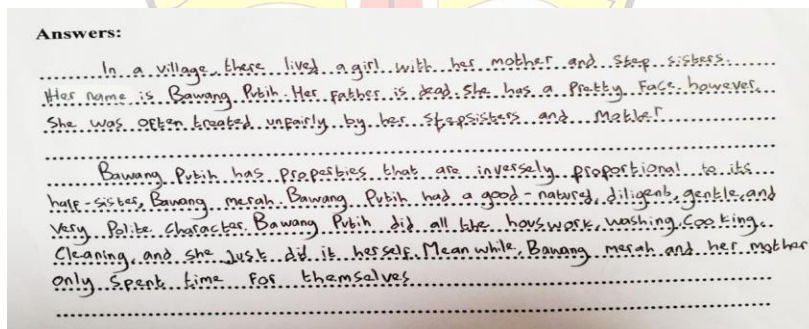 Answers:
In a village, there lived a girl with her mother and step sisters.
Her name is Bawang Putih. Her father is dead. she has a pretty face. however
she was often treated unfairly by her stepsisters and Mother
Bawang Putih has properties that are inversely proportional to its
half-sister, Bawang merah. Bawang Putih had a good-natured, diligent, gentle, and
very polite character. Bawang Putih did all the houswork, washing, Cooking,
Cleaning, and she Just did it herself. Mean while, Bawang merah and her mother
only spent time for themselves